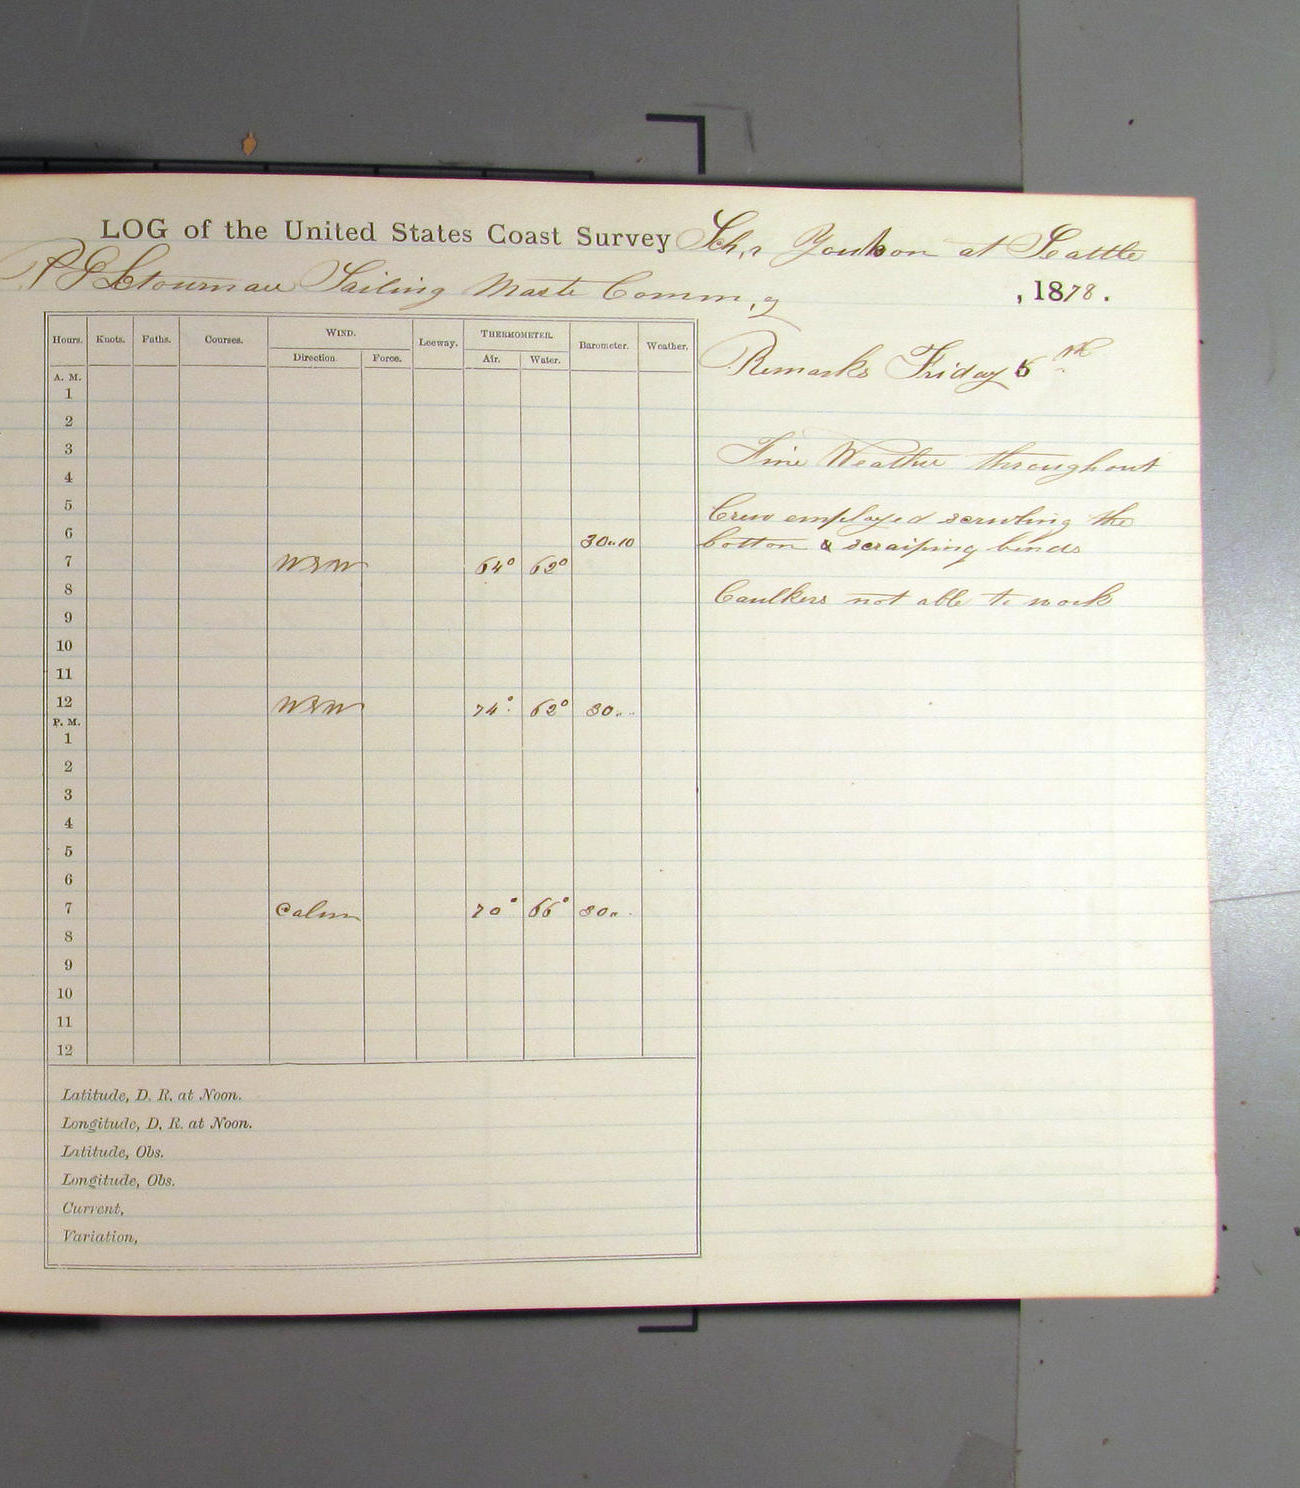 LOG of the United States Coast Survey Schr Youkon at Seattle
Sailing Maste Comm,g , 1878.
Hours. Knots. Faths. Courses. WIND. Leeway. THERMOMETER. Barometer. Weather.
Direction. Force. Air. Water.
Remarks Friday 5th
A. M.
1
2
3 Fine Weather throughout
4
5 Crew employed scrubing the
6 30.10 botton & scraiping bends
7 WSW 64° 62°
8 Caulkers not able to work
9
10
11
12 WSW 74° 62° 30..
P. M.
1
2
3
4
5
6
7 Calm 70° 66° 30..
8
9
10
11
12
Latitude, D. R. at Noon.
Longitude, D. R. at Noon.
Latitude, Obs.
Longitude, Obs.
Current,
Variation,